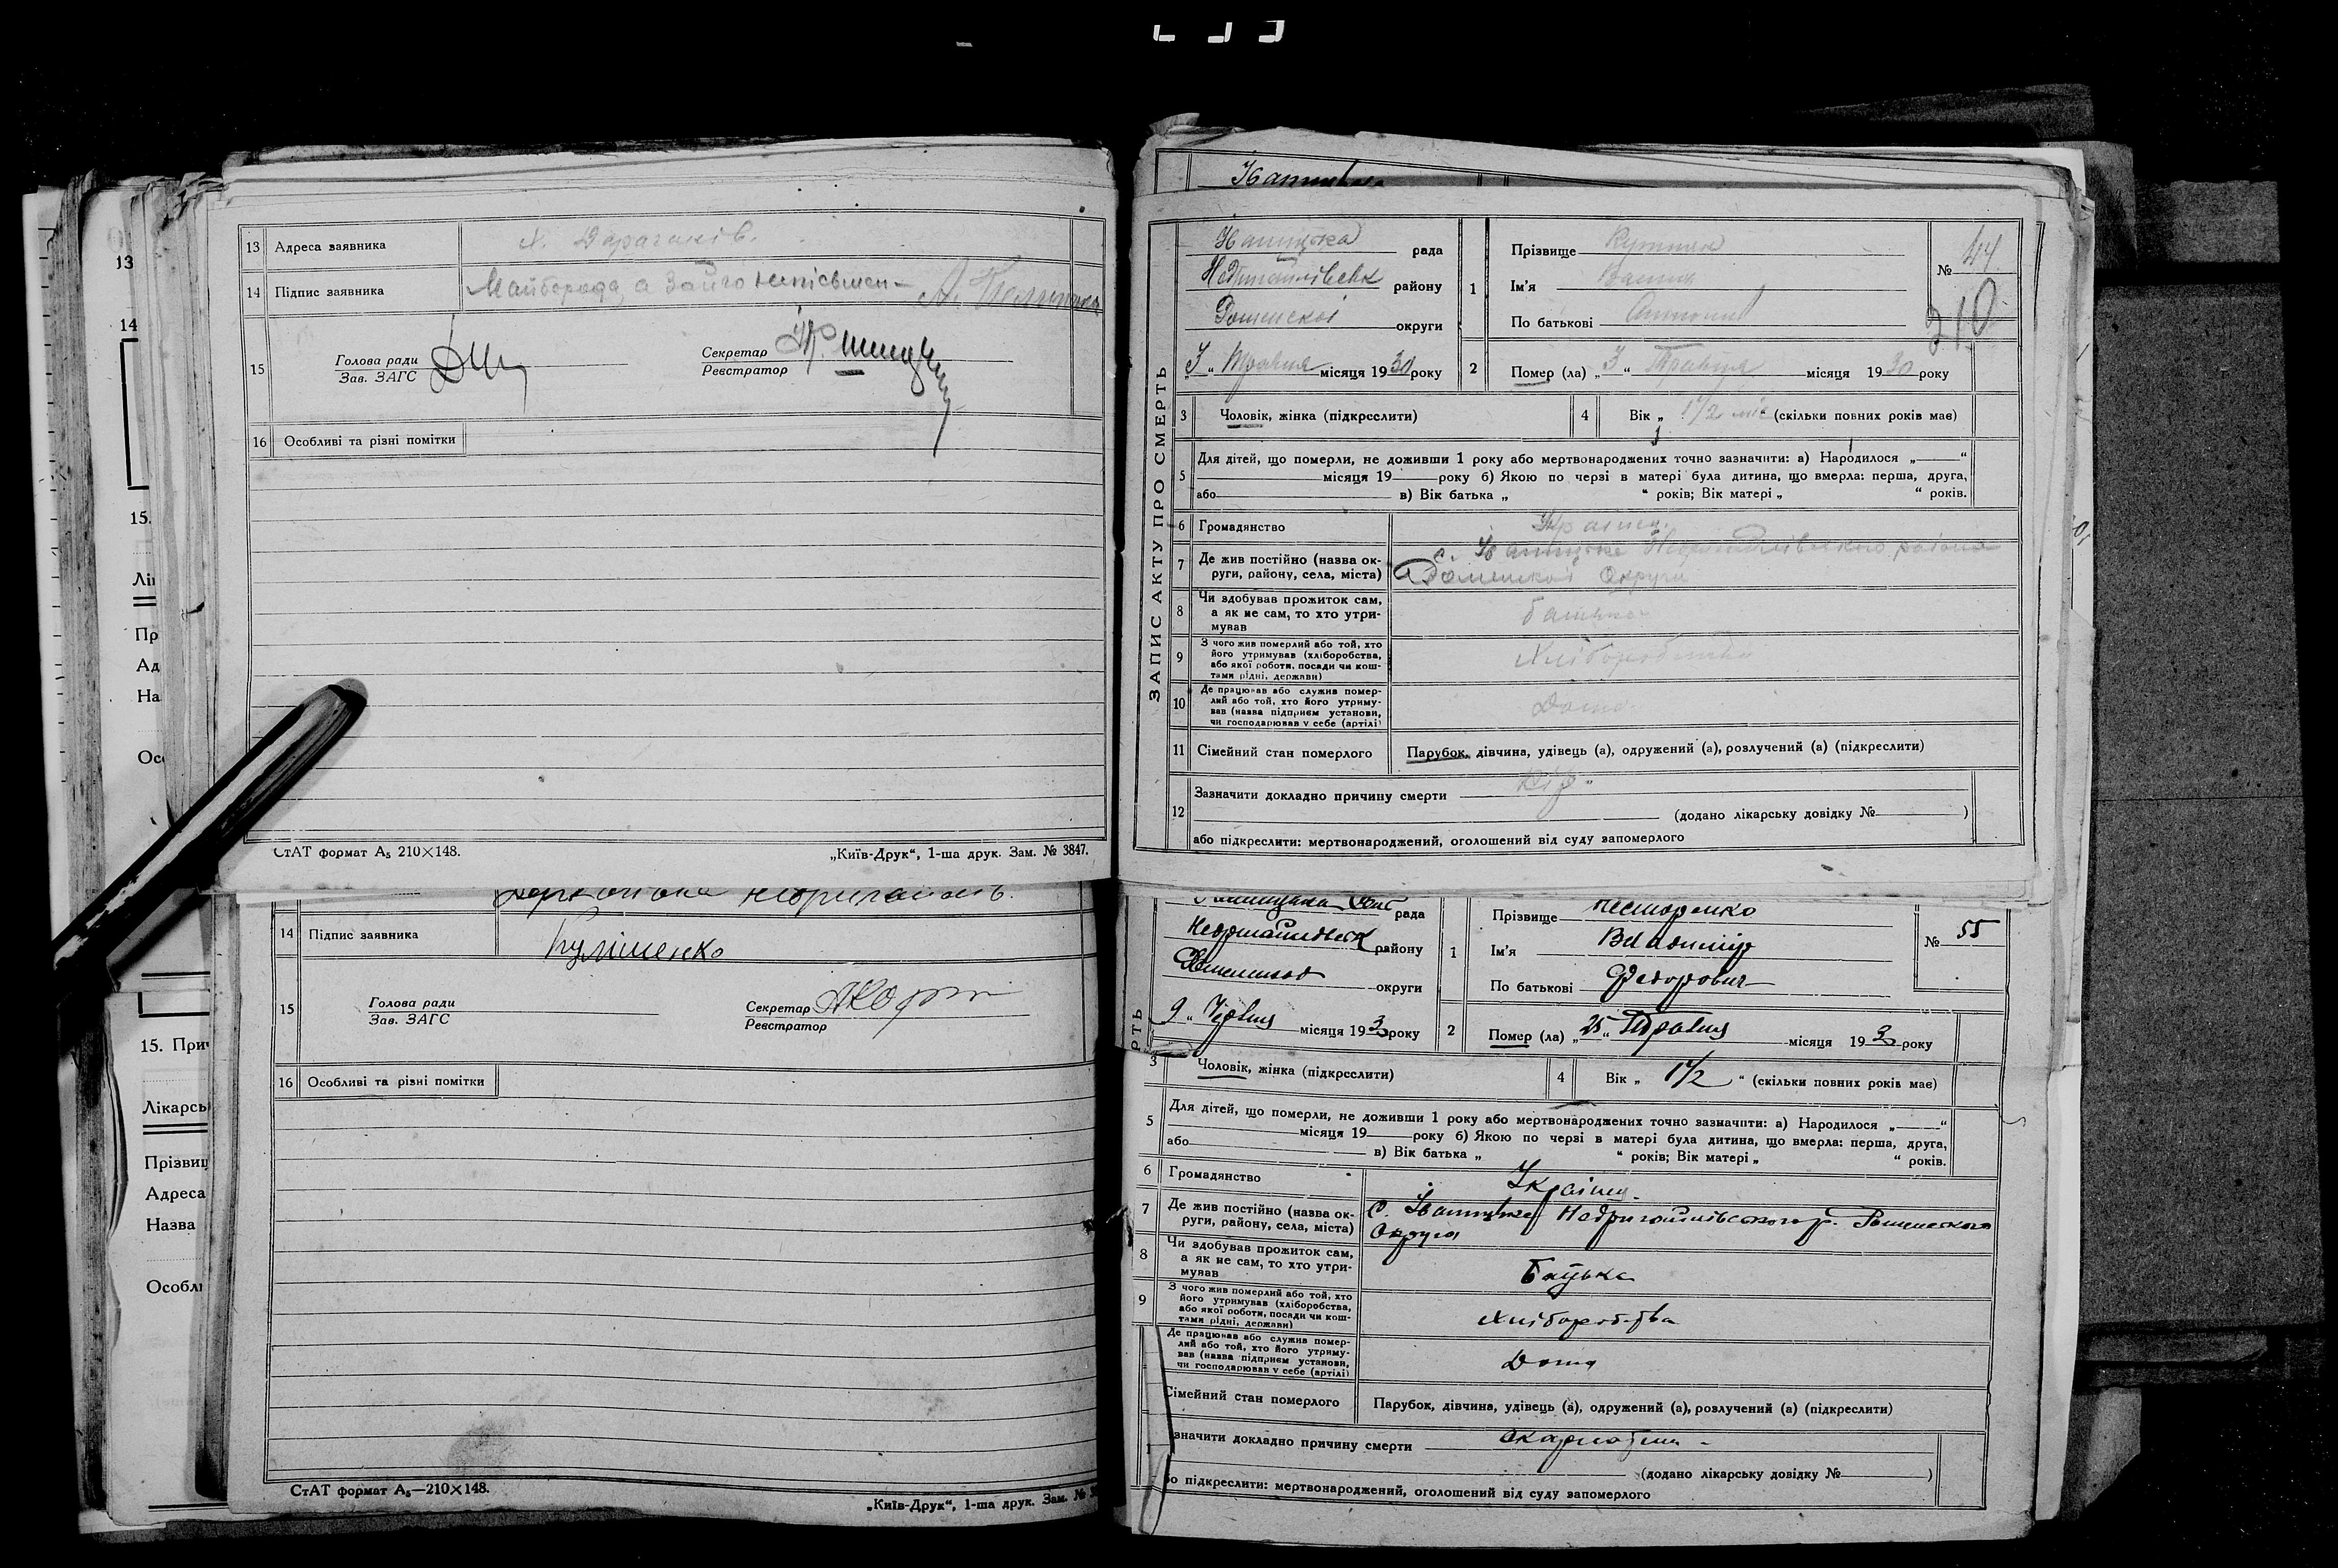 13 Адреса заявника
14 Підпис заявника Майборода а за його неписьмен-
15 Голова ради
Зав. ЗАГС
Секретар
Реєстратор
16 Особливі та різні помітки
СтАТ формат А₅ 210×148. „Київ-Друк“, 1-ша друк. Зам. № 3847.
14 Підпис заявника Кулішенко
15 Голова ради
Зав. ЗАГС
Секретар
Реєстратор
16 Особливі та різні помітки
СтАТ формат А₅—210×148. „Київ-Друк“, 1-ша друк. Зам. №
13
14
15.
Лі
Пр
Ад
На
Ос
15. При
Лікарсь
Прізвищ
Адреса
Назва
Особл
ЗАПИС АКТУ ПРО СМЕРТЬ
рада
району
Роменскої округи
„3“ Травня місяця 1930 року
1 Прізвище
Ім'я
По батькові
№ 44
310
2 Помер (ла) „3“ Травня місяця 1930 року
3 Чоловік, жінка (підкреслити)
4 Вік „1½ “ (скільки повних років має)
5 Для дітей, що померли, не доживши 1 року або мертвонароджених точно зазначити: а) Народилося „ “
місяця 19 року б) Якою по черзі в матері була дитина, що вмерла: перша, друга,
або в) Вік батька „ “ років; Вік матері „ “ років.
6 Громадянство Україн.
7 Де жив постійно (назва ок-
руги, району, села, міста)
с. Іваницьке Недригайлівського району
Роменської Округи
8 Чи здобував прожиток сам,
а як не сам, то хто утри-
мував
батько
9 З чого жив померлий або той, хто
його утримував (хліборобства,
або якої роботи, посади чи кош-
тами рідні, держави)
Хліборобства
10 Де працював або служив помер-
лий або той, хто його утриму-
вав (назва підприєм установи,
чи господарював у себе (артілі)
Дома
11 Сімейний стан померлого Парубок, дівчина, удівець (а), одружений (а), розлучений (а) (підкреслити)
12 Зазначити докладно причину смерти Кір
(додано лікарську довідку № )
або підкреслити: мертвонароджений, оголошений від суду запомерлого
РТЬ
рада
Недригайлівськ району
округи
9 „ Червня місяця 193 року
1 Прізвище Нестеренко
Ім'я Владимір
По батькові Федорович
№ 55
2 Помер (ла) „25“ Травня місяця 193 року
3 Чоловік, жінка (підкреслити)
4 Вік „ 1½ “ (скільки повних років має)
5 Для дітей, що померли, не доживши 1 року або мертвонароджених точно зазначити: а) Народилося „ “
місяця 19 року б) Якою по черзі в матері була дитина, що вмерла: перша, друга,
або в) Вік батька „ “ років; Вік матері „ “ років.
6 Громадянство Україн.
7 Де жив постійно (назва ок-
руги, району, села, міста)
с. Іваницьке Недригайлівського р. Роменского
Округи
8 Чи здобував прожиток сам,
а як не сам, то хто утри-
мував
Батька
9 З чого жив померлий або той, хто
його утримував (хліборобства,
або якої роботи, посади чи кош-
тами рідні, держави)
Хліборобства
Де працював або служив помер-
лий або той, хто його утриму-
вав (назва підприєм установи,
чи господарював у себе (артілі)
Дома
Сімейний стан померлого Парубок, дівчина, удівець (а), одружений (а), розлучений (а) (підкреслити)
значити докладно причину смерти скарлатин
(додано лікарську довідку № )
бо підкреслити: мертвонароджений, оголошений від суду запомерлого